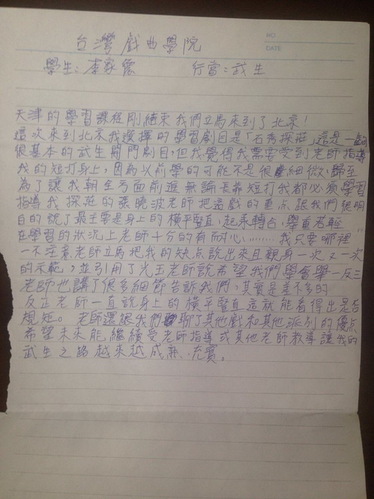 NO.
DATE
台灣戲曲學院
學生:李家儂 行當:武生
天津的學習課程剛結束我們立馬來到了北京!
這次來到北京我選擇的學習劇目是「石秀探莊」這是一齣
很基本的武生開門劇目,但我覺得我需要受到老師指導
我的短打身上,因為以前學的可能不是很細微,歸至
為了讓我朝全方面前進無論長靠短打我都必須學習
指導我探莊的張曉波老師把這戲的重點跟我們很明
白的說了最主要是身上的橫平豎直、起承轉合、
在學習的狀況上老師十分的有耐心……我只要哪裡
一不注意老師立馬把我的缺點說出來且親身一次又一次
的示範,並引用了 王老師說希望我們學會舉一反三
老師也購了很多細節告訴我們、其實是差不多的
反正老師一直說身上的橫平豎直這就能看得出是否
規矩。老師還跟我們聊了其他戲和其他派別的優點
希望未來能繼續受老師指導或其他老師教導讓我的
武生之路越來越成熟、充實。